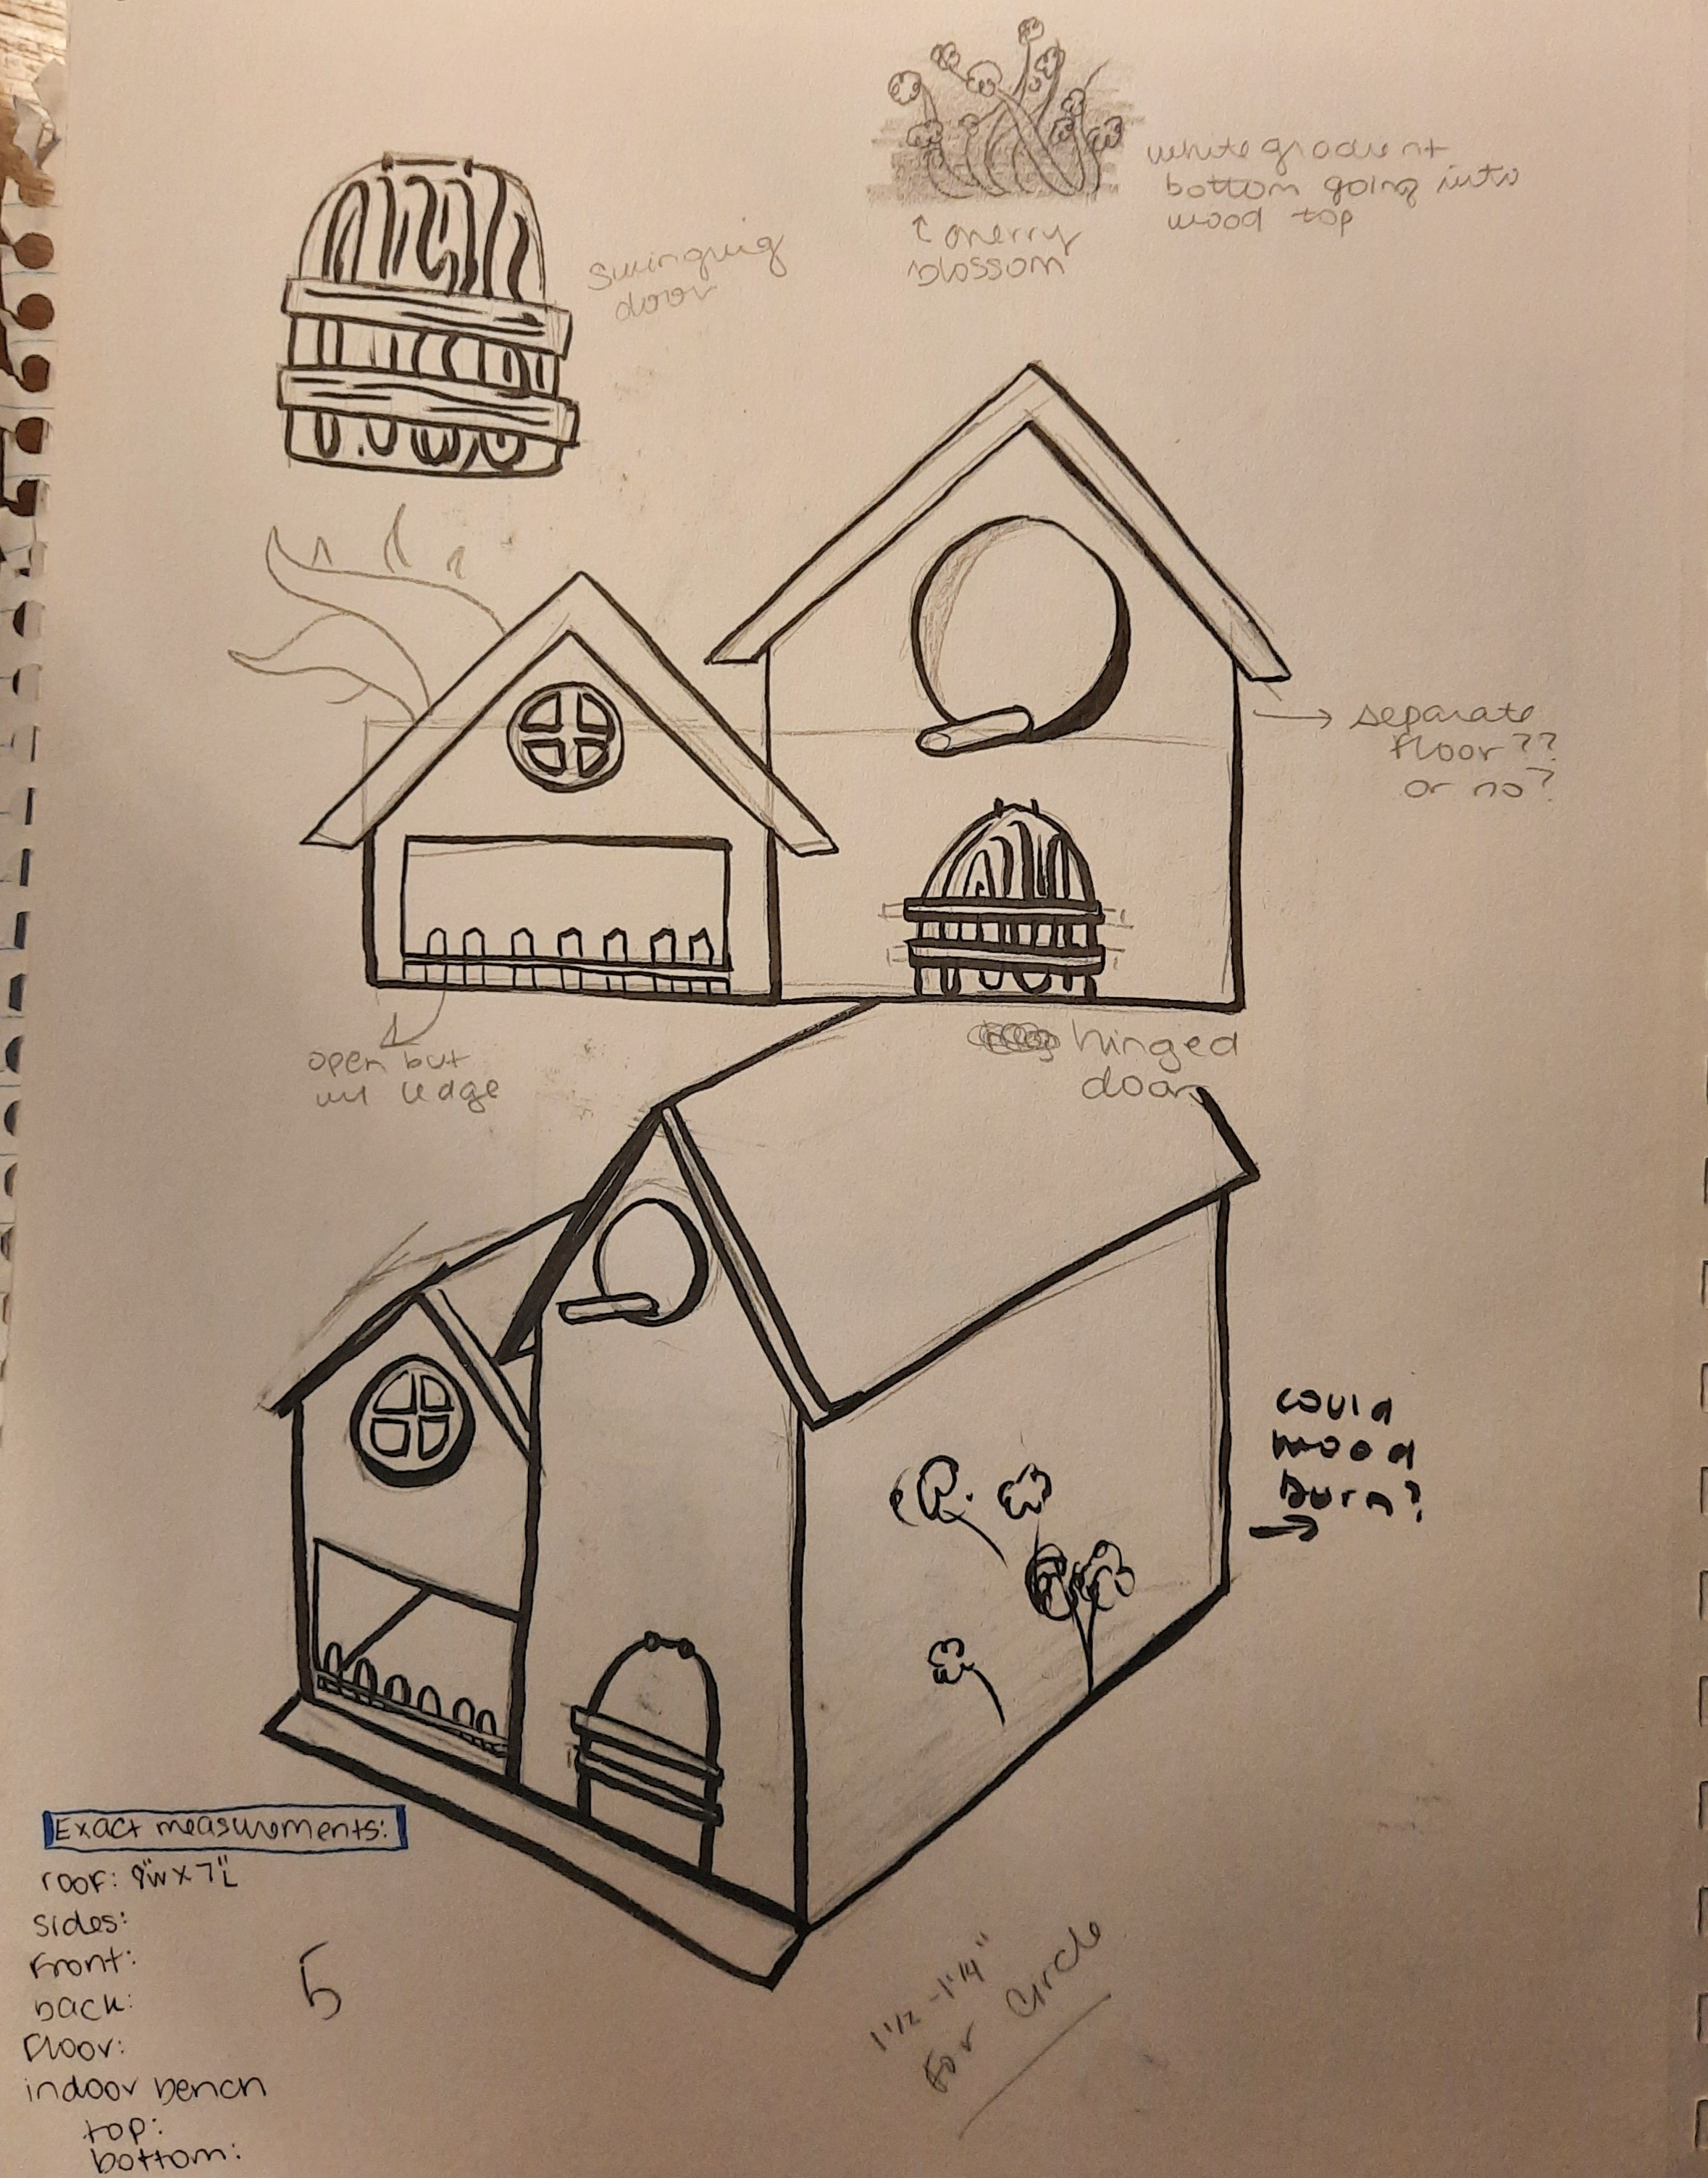 white gradient
bottom going into
wood top
↑ cherry
blossom
swinging
door
→ separate
floor??
or no?
open but
w/ ledge
hinged
door
could
wood
burn?
→
Exact measurements:
roof: 9"w x 7"L
sides:
front:
back:
floor:
indoor bench
top:
bottom:
5
1 1/2 - 1 1/4"
for circle